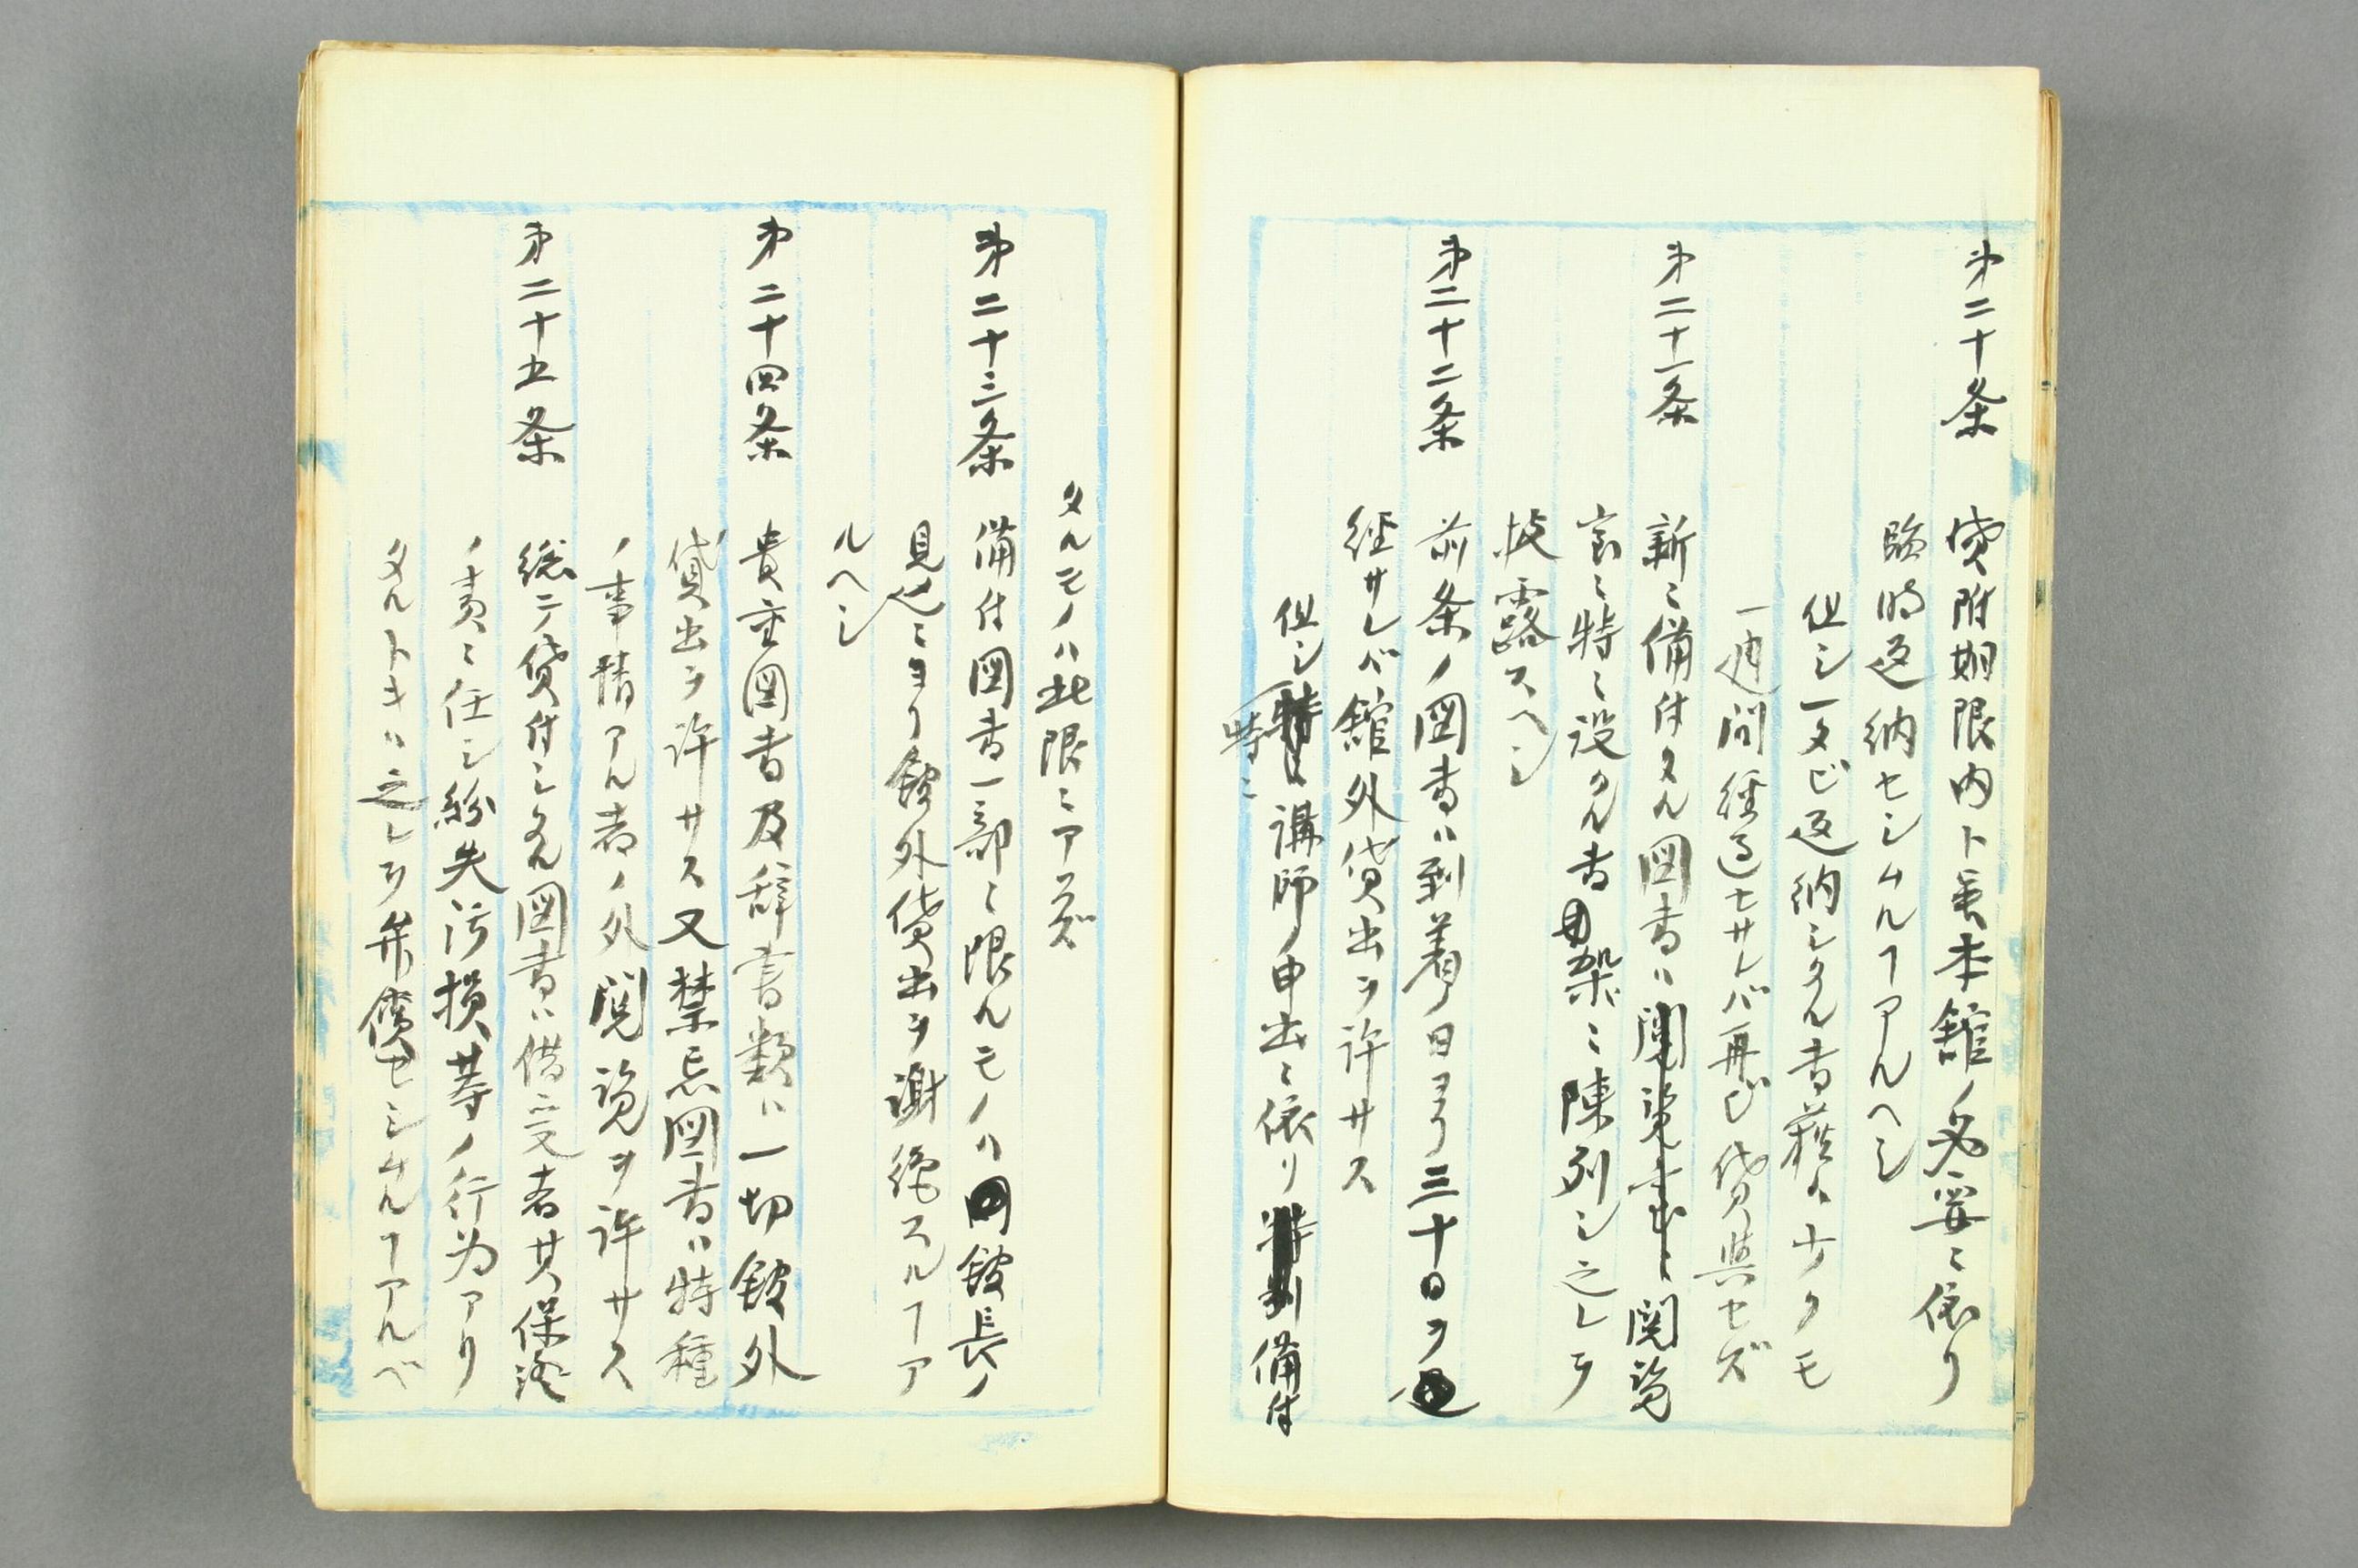 第二十条 貸附期限内ト雖本館ノ必要ニ依リ
臨時返納セシムルヿアルヘシ
但シ一タビ返納シタル書籍ハ少クモ
一週間経過セサレバ再ビ貸與セズ
第二十一条 新ニ備付タル図書ハ閲覧室ニ閲覧
室ニ特ニ設クル書架ニ陳列シ之レヲ
披露スヘシ
第二十二条 前条ノ図書ハ到着日ヨリ三十日ヲ
経サレバ館外貸出ヲ許サス
但シ特ニ講師ノ申出ニ依リ特別備付
特ニ
タルモノハ此限ニアラズ
第二十三条 備付図書一部ニ限ルモノハ図館長ノ
見込ニヨリ館外貸出ヲ謝絶スルヿア
ルヘシ
第二十四条 貴重図書及辞書類ハ一切館外
貸出ヲ許サス又禁忌図書ハ特種
ノ事情アル者ノ外閲覧ヲ許サス
第二十五条 総テ貸付シタル図書ハ借受者其保證
ノ責ニ任シ紛失汚損等ノ行為アリ
タルトキハ之レヲ弁償セシムルヿアルベ